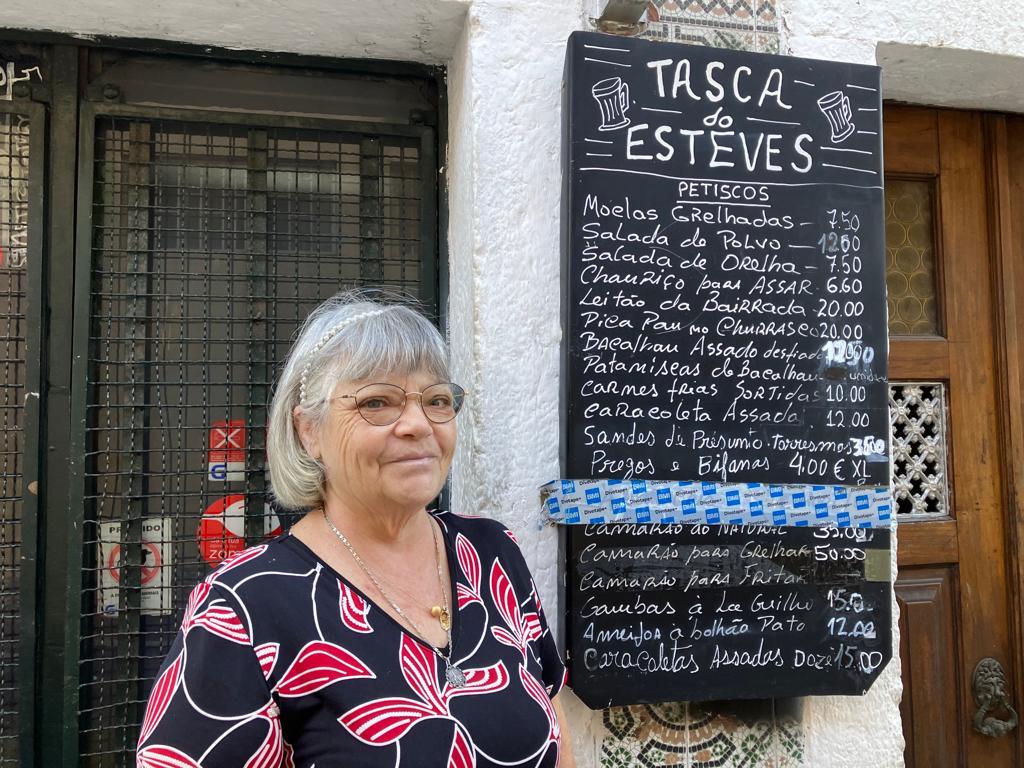 TASCA
do
ESTEVES
PETISCOS
Moelas Grelhadas - 7.50
Salada de Polvo — 12.00
Salada de Orelha - 7.50
Chouriço para ASSAR - 6.60
Leitão da Bairrada - 20.00
Pica Pau no Churrasco 20.00
Bacalhau Assado desfiado
Pataniscas de Bacalhau
carnes frias SORTIDAS 10.00
caracoleta Assada 12.00
Sandes de Presunto. torresmos
Pregos e Bifanas 4.00 € XL
BMI Divetape+ BMI Divetape+ BMI Divetape+ BMI
CAMARÃO AO NATURAL 35.00
CAMARÃO PARA Grelhar 50.00
CAMARÃO PARA FRITAR
Gambas à La Guilho 15.0
Ameijoa à bolhão Pato 12.00
Caracoletas Assadas Doze 15.00
zon